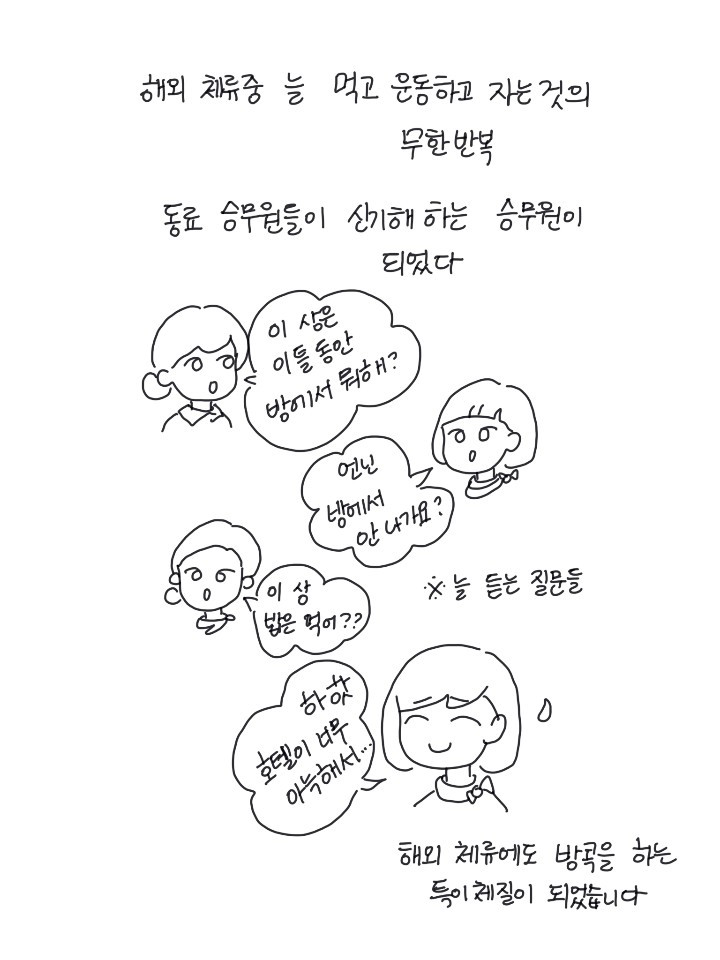 해외 체류중 늘 먹고 운동하고 자는것의
무한반복
동료 승무원들이 신기해 하는 승무원이
되었다
이 상은
이틀동안
방에서 뭐해?
언닌
방에서
안 나가요?
이 상
밥은 먹어??
※늘 듣는 질문들
하핫
호텔이 너무
아늑해서...
해외 체류에도 방콕을 하는
특이체질이 되었습니다